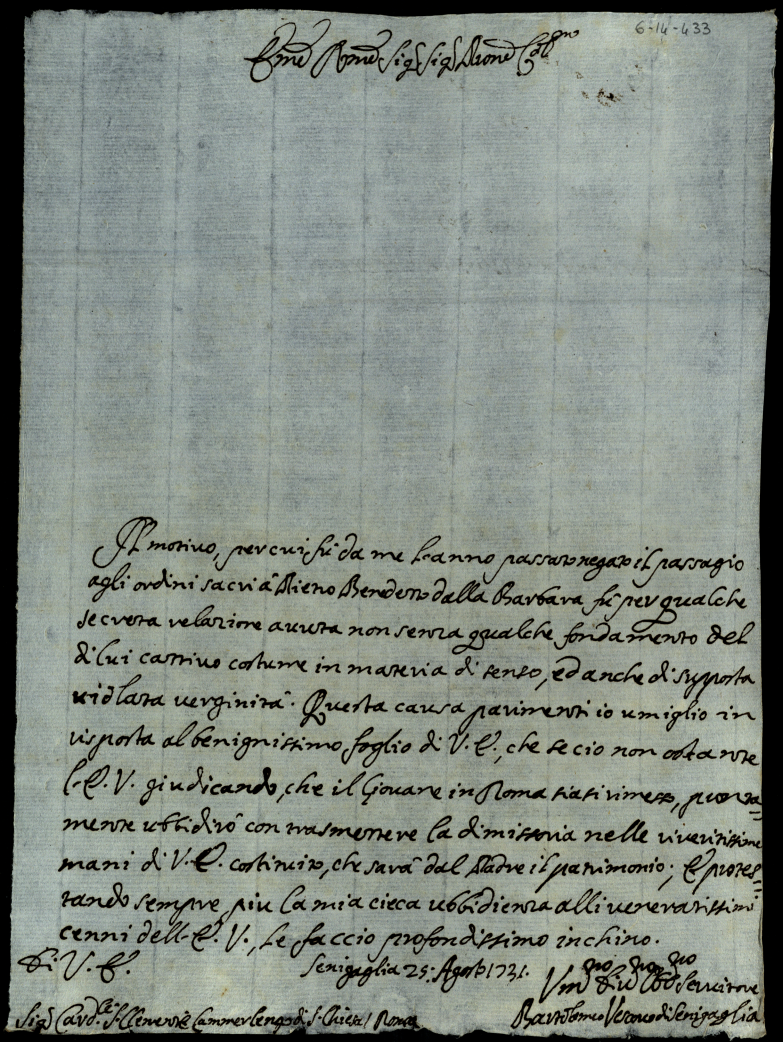 6-14-433
Em̃e Rm̃e Sig.r Sig.r Prone Col.mo
Il motivo, per cui fù da me l'anno passato negato il passagio
agli ordini sacri à Pietro Benedetto dalla Barbara fù per qualche
secreta relazione avuta non senza qualche fondamento del
di lui cattivo costume in materia di senso, ed anche di supposta
violata verginità. Questa causa parimenti io umiglio in
risposta al benignissimo foglio di V. E., che se cio non ostante
l'E. V. giudicando, che il Giovane in Roma siasi rimesso, pronta=
mente ubbidirò con trasmettere la dimissoria nelle riveritissime
mani di V. E. costituito, che sarà dal Padre il patrimonio; E protes=
tando sempre piu la mia cieca ubbidienza alli veneratissimi
cenni dell'E. V., le faccio profondissimo inchino.
Di V. E.
Senigaglia 25: Agosto 1731.
Um.mo Div.mo Obb.mo Servitore
Sig.r Card.le S. Clemente Cammerlengo di S. Chiesa / Roma
Bartolomeo Vescovo di Senigaglia